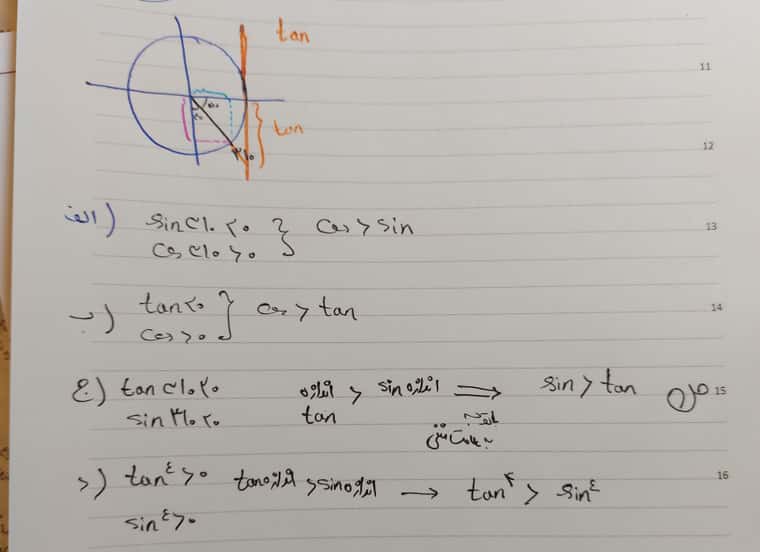 tan
11
tan
12
۳۱۰
الف) sin ۳۱۰ < ۰ } cos > sin
cos ۳۱۰ > ۰
13
ب) tan < ۰ } cos > tan
cos > ۰
14
ج) tan ۳۱۰ < ۰ اندازه tan > اندازه sin ⟹ sin > tan
sin ۳۱۰ < ۰ باتوجه به علامت منفی
15
د) tan⁴ > ۰ اندازه tan > اندازه sin → tan⁴ > sin⁴
sin⁴ > ۰
16